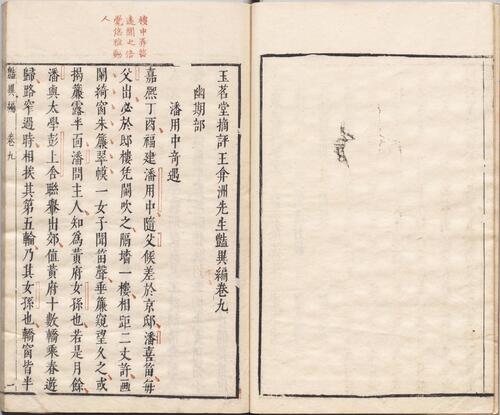 玉茗堂摘評王弇洲先生豔異編卷九
幽期部
潘用中奇遇
嘉熙丁酉福建潘用中隨父候差於京邸潘喜笛每
父出必於邸樓凭闌吹之隔墻一樓相距二丈許畫
闌綺窗朱簾翠幙一女子聞笛聲垂簾窺望久之或
揭簾露半面潘問主人知為黃府女孫也若是月餘
潘與太學彭上舍聯轝出郊值黃府十數轎乘春遊
歸路窄過時相挨其第五輪乃其女孫也轎窗皆半
豔異編 卷九 一
樓中弄笛
遠聞之倍
覺悠雅動
人